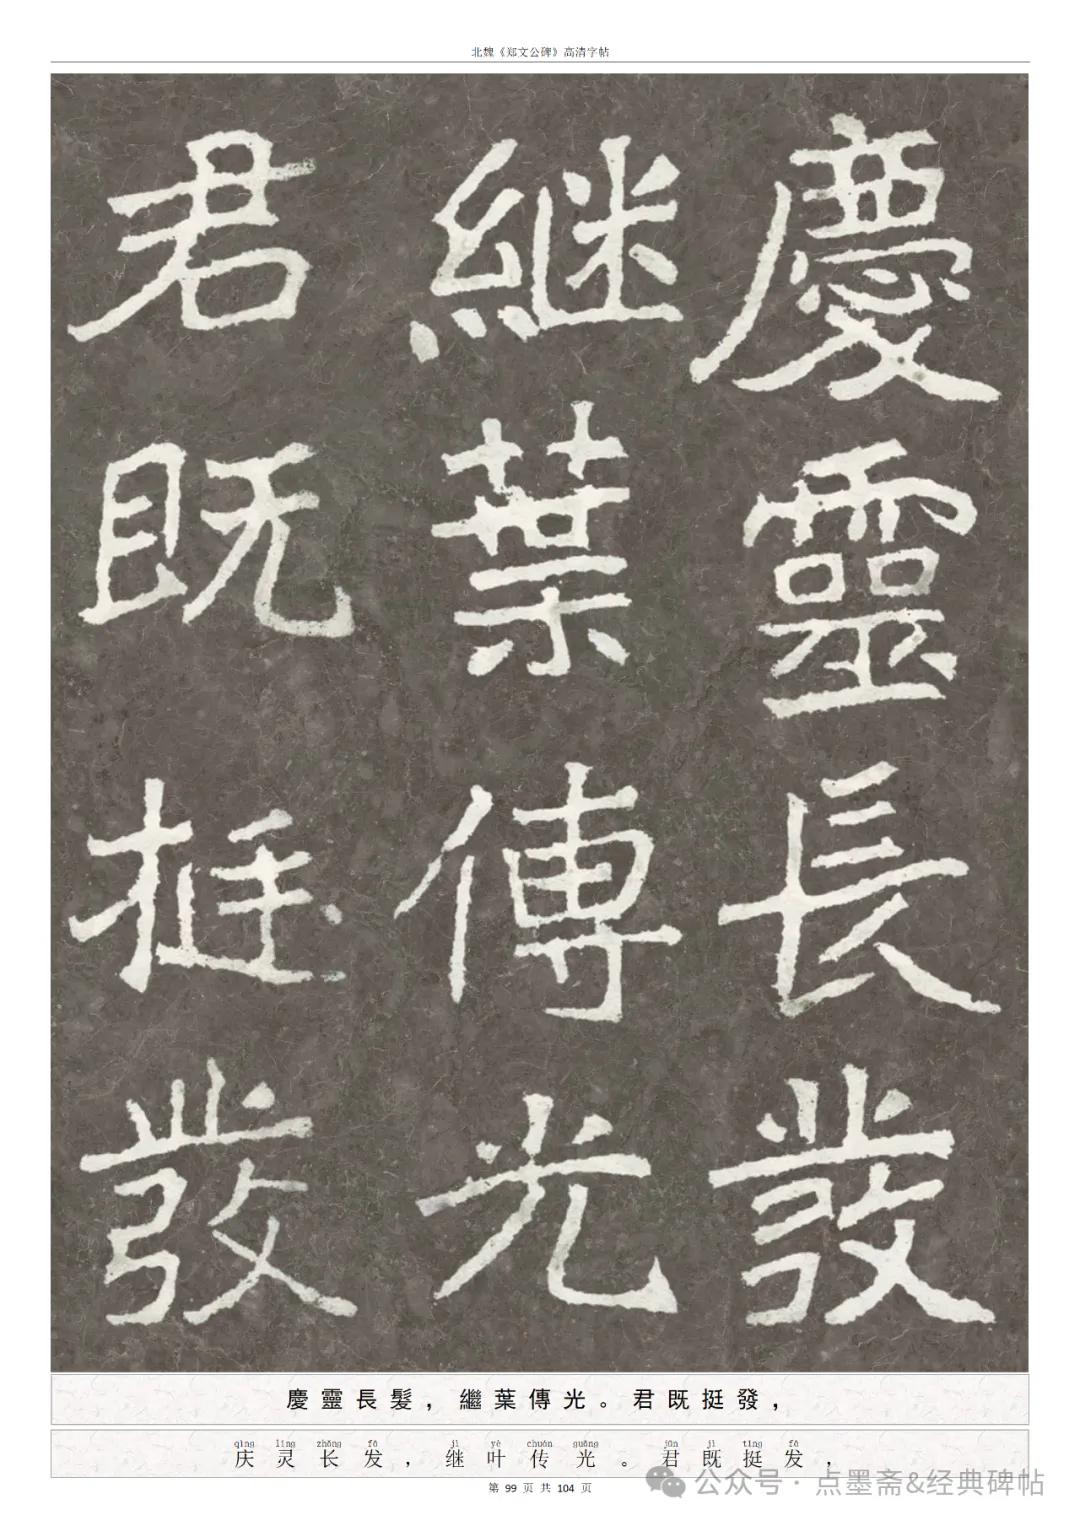 北魏《郑文公碑》高清字帖
慶靈長發
継葉傳光
君既挺發
慶靈長髮，繼葉傳光。君既挺發，
qìng líng zhǎng fā jì yè chuán guāng jūn jì tǐng fā
庆灵长发，继叶传光。君既挺发，
第 99 页 共 104 页
公众号 · 点墨斋&经典碑帖